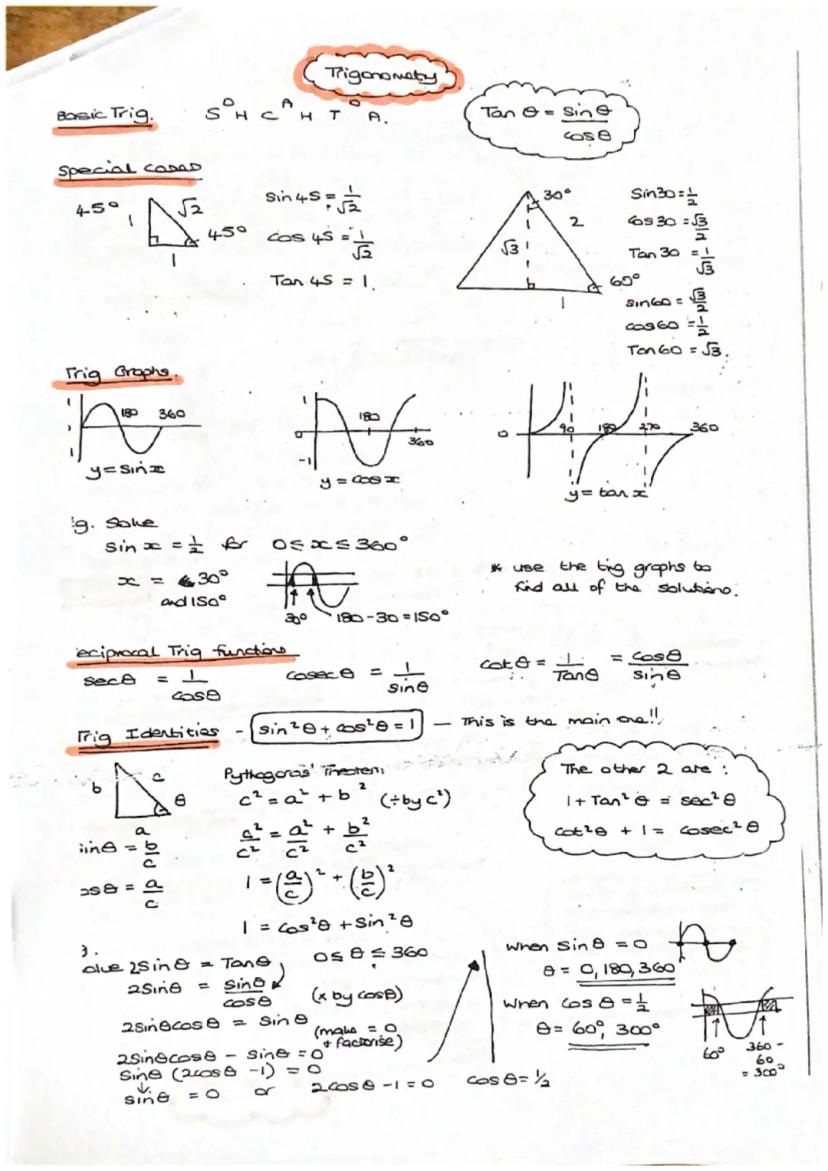 Trigonometry
Basic Trig. SOH CAH TOA.
Tan θ = sin θ / cos θ
Special cases
45° 1 √2 45° 1
sin 45 = 1/√2
cos 45 = 1/√2
Tan 45 = 1.
30° 2 √3 60° 1
Sin 30 = 1/2
cos 30 = √3/2
Tan 30 = 1/√3
sin 60 = √3/2
cos 60 = 1/2
Tan 60 = √3.
Trig Graphs.
1 180 360
y = sin x
1 0 -1 180 360
y = cos x
0 90 180 270 360
y = tan x
g. Solve
sin x = 1/2 for 0 ≤ x ≤ 360°
x = 30°
and 150°
30° 180 - 30 = 150°
* use the trig graphs to
find all of the solutions.
eciprocal Trig functions
sec θ = 1/cos θ
cosec θ = 1/sin θ
cot θ = 1/Tan θ = cos θ/sin θ
Trig Identities - sin²θ + cos²θ = 1 — This is the main one!!
b c θ a
inθ = b/c
osθ = a/c
Pythagoras' Theorem
c² = a² + b² (÷ by c²)
c²/c² = a²/c² + b²/c²
1 = (a/c)² + (b/c)²
1 = cos²θ + sin²θ
The other 2 are :
1 + Tan²θ = sec²θ
cot²θ + 1 = cosec²θ
g.
olve 2sin θ = Tan θ 0 ≤ θ ≤ 360
2sin θ = sin θ/cos θ (x by cos θ)
2sin θ cos θ = sin θ (make = 0
+ factorise)
2sin θ cos θ - sin θ = 0
sin θ (2cos θ - 1) = 0
sin θ = 0 or 2cos θ - 1 = 0 cos θ = 1/2
when sin θ = 0
θ = 0, 180, 360
when cos θ = 1/2
θ = 60°, 300°
60° 360 -
60
= 300°